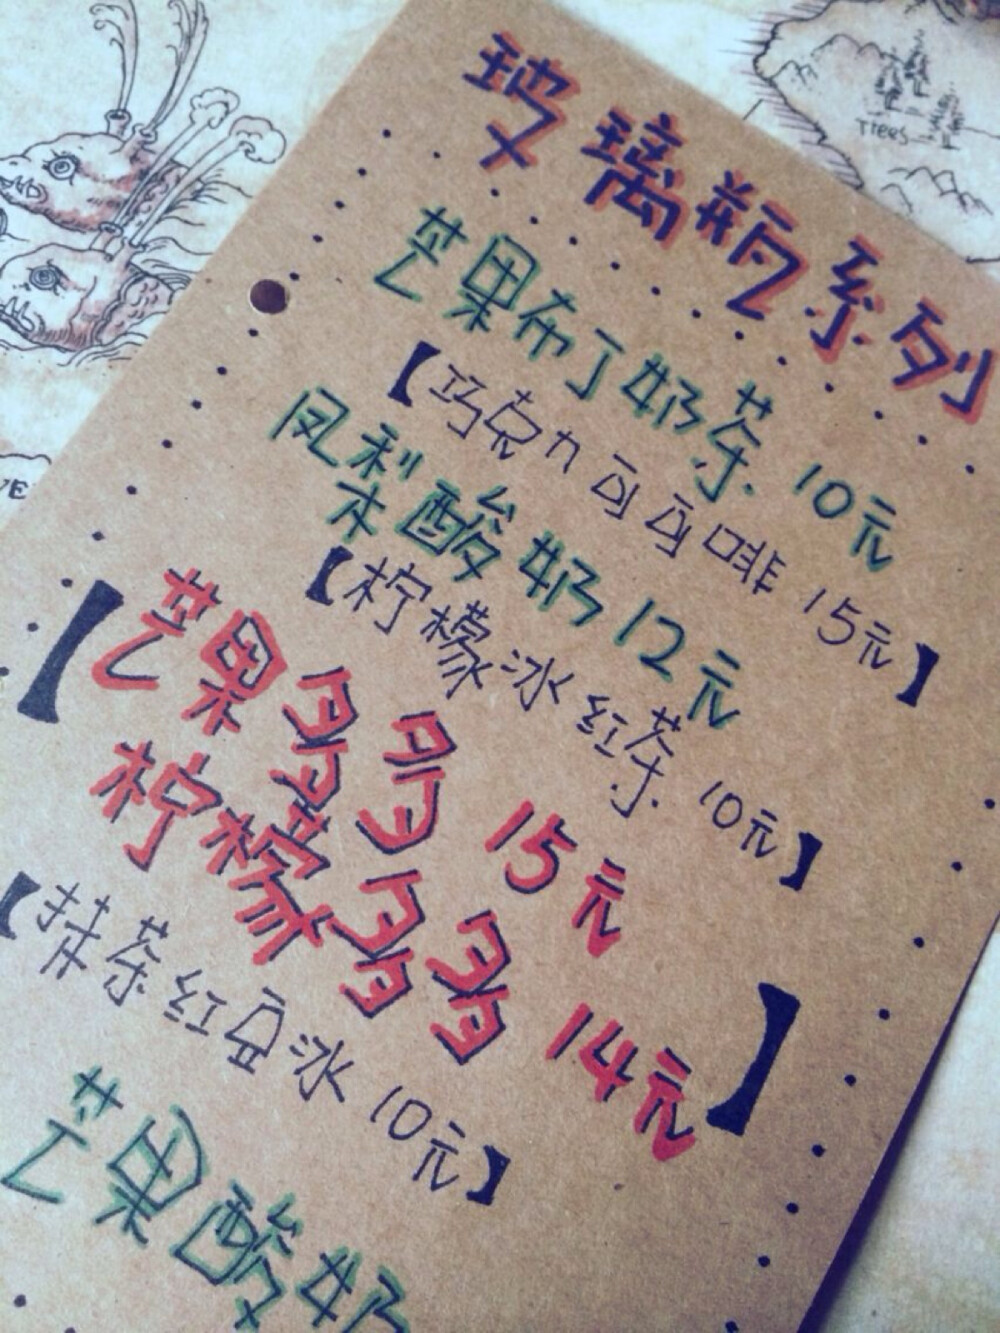 玻璃瓶系列
芒果布丁奶茶 10元
【巧克力可可啡 15元】
凤梨酸奶 12元
【柠檬冰红茶 10元】
【芒果多多 15元
柠檬多多 14元】
【抹茶红豆冰 10元】
芒果酸奶
Trees